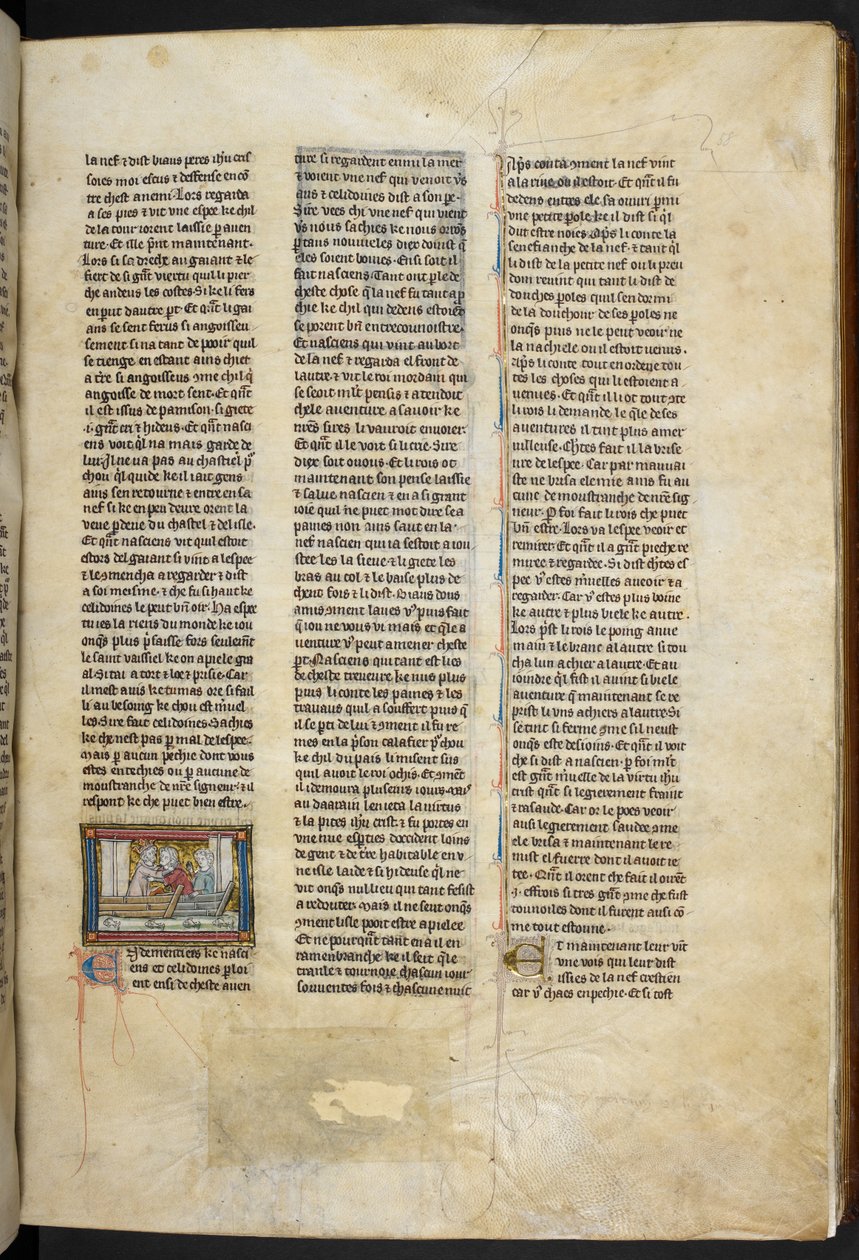 la nef ⁊ dist biaus peres ihũ cris
soies moi escus ⁊ desfense en cõ
tre chest anemi. Lors regarda
a ses pies ⁊ vit vne espee ke chil
de la tour iorent laissie p̱ auen
ture. Et il le p̃nt maintenant.
Lors si sa dreche au gaiant ⁊ le
fiert de si gñt viertu quil li pier
che andeus les costes. Si ke li fers
en put dautre p̱t. Et qñt li gai
ans se sent ferus si angoisseu
sement si na tant de pooir quil
se tienge en estant ains chiet
a tr̃e si angoisseus ꝯme chil q̓
angoisse de mort sent. Et qñt
il est issus de pamison. si giete
.i. gñt cri ⁊ hideus. Et qñt nasci
ens voit q̓l na mais garde de
lui. Il ne va pas au chastiel p̱
chou q̓l quide ke il iait gens
ains sen retorne ⁊ entre en sa
nef si ke en peu deure orent la
veue p̱due du chastel ⁊ del isle.
Et qñt nasciens vit quil estoit
estors del gaiant si vint a lespee
⁊ le ꝯmencha a regarder ⁊ dist
a soi meisme. ⁊ che fu si haut ke
celidoines le peut bñ oir. Ha espee
tu ies la riens du monde ke iou
onq̃s plus p̓saisse fors seulem̃t
le saint vaissiel ke on apiele gra
al. Si tai a tort ⁊ loe ⁊ prisie. Car
il mest auis ke tu mas ore si fail
li au besoing ke chou est m̓uel
les. Sire fait celidoines. Sachies
ke che nest pas p̱ mal de lespee.
Mais p̱ aucun pechie dont vous
estes entechies ou p̱ aucune de
moustranche de nr̃e signeur. ⁊ il
respont ke che puet bien estre.
Endementiers ke nasci
ens et celidoines p̱loi
ent ensi de cheste auen
ture si regardent en mi la mer
⁊ voient vne nef qui venoit v̓s
aus ⁊ celidoines dist a son pe.
Sire vees chi vne nef qui vient
v̓s nous sachies ke nous orrõs
p̱ tans nouueles diex doinst q̃
eles soient boines. Ensi soit il
fait nasciens. Tant ont p̱le de
cheste chose q̃ la nef fu tant ap̱
chie ke chil qui dedens estoiẽt
se porent bñ entreconoistre.
Et nasciens qui vint au bort
de la nef ⁊ regarda el front de
lautre. ⁊ vit le roi mordain qui
se seoit ml̃t pensis ⁊ atendoit
chele auenture a sauoir ke
nr̃es sires li vauroit enuoier.
Et qñt il le voit si li crie. Sire
diex soit o vous. Et li rois ot
maintenant son pense laissie
⁊ salue nascien ⁊ en a si grant
ioie quil ne puet mot dire se a
paines non. Ains saut en la
nef nascien qui ia sestoit a iou
stee les la sieue ⁊ li giete les
bras au col ⁊ le baise plus de
chent fois ⁊ li dist. Biaus dous
amis ꝯment laues v̓ puis fait
q̃ iou ne vous vi mais et q̃le a
uenture v̓ peut amener cheste
p̱t. Nasciens qui tant est lies
de cheste treueure ke nus plus
puis li conte les paines ⁊ les
trauaus quil a souffert puis q̃
il se p̱ti de lui ⁊ ꝯment il fu re
mes en la p̓son calafier p̱ chou
ke chil du pais li misent sus
quil auoit le roi ochis. Et ꝯmẽt
il i demoura pluseurs iours. Mais
au daarain len ieta la viertus
⁊ la pites ihũ crist. ⁊ fu portes en
vne nue es p̱ties doccident loins
de gent ⁊ de tr̃e habitable en v
ne isle laide ⁊ si hideuse q̓l ne
vit onq̃s nul lieu qui tant fesist
a redouter. Mais il ne seut onq̃s
ꝯment lisle pooit estre apielee
Et ne pourq̃nt tant en a il en
ramenbranche ke il seit q̃le
tranle ⁊ tournoie chascun iour
souuentes fois ⁊ chascune nuit
Ap̃s conta ꝯment la nef vint
a la riue ou il estoit. Et qñt il fu
dedens entres ele sa ouuri p̱ mi
vne petite p̱ole ke il dist si q̓l
dut estre noies. Ap̃s li conte la
senefianche de la nef. ⁊ tant q̓l
li dist de la petite nef ou li preu
dom reuint qui tant li dist de
douches p̱oles quil sendormi
de la douchour de ses poles ne
onq̃s puis ne le peut veoir ne
la nachiele ou il estoit venus.
Ap̃s li conte tout en ordene tou
tes les choses qui li estoient a
uenues. Et qñt il i ot tout ꝯte
li rois li demande. le q̃le de ses
auentures il tint plus amer
uilleuse. Ch̓tes fait il la brise
ure de lespee. Car par mauuai
ste ne brisa ele mie ains fu au
cune demoustranche de nr̃e sig
neur. P̱ foi fait li rois che puet
bñ estre. Lors va lespee veoir et
remirer. Et qñt il a gñt pieche re
miree ⁊ regardee. Si dist ch̓tes es
pee v̓ estes m̓uelles aueoir ⁊ a
regarder. Car v̓ estes plus boine
ke autre ⁊ plus biele ke autre.
Lors p̓st li rois le poing a une
main ⁊ le branc a lautre si tou
cha lun achier a lautre. Et au
ioindre q̓l fist il auint si biele
auenture q̃ maintenant se re
prist li vns achiers a lautre. Si
se tint si ferme ꝯme sil neust
onq̃s este desioins. Et qñt il voit
che si dist a nascien. P̱ foi ml̃t
est gñt m̓uelle de la virtu ihũ
crist quant si legierement fraint
⁊ rasaude. Car or le poes veoir
ausi legierement saudee ꝯme
ele brisa ⁊ maintenant le re
mist el fuerre dont il auoit ie
tee. Qñt il orent che fait il oirẽt
.i. effrois si tres gñt ꝯme che fust
tounoiles dont il furent ausi cõ
me tout estoune.
Et maintenant leur vit
vne vois qui leur dist
issies de la nef crestien
car v̓ chaes en pechie. Et si tost